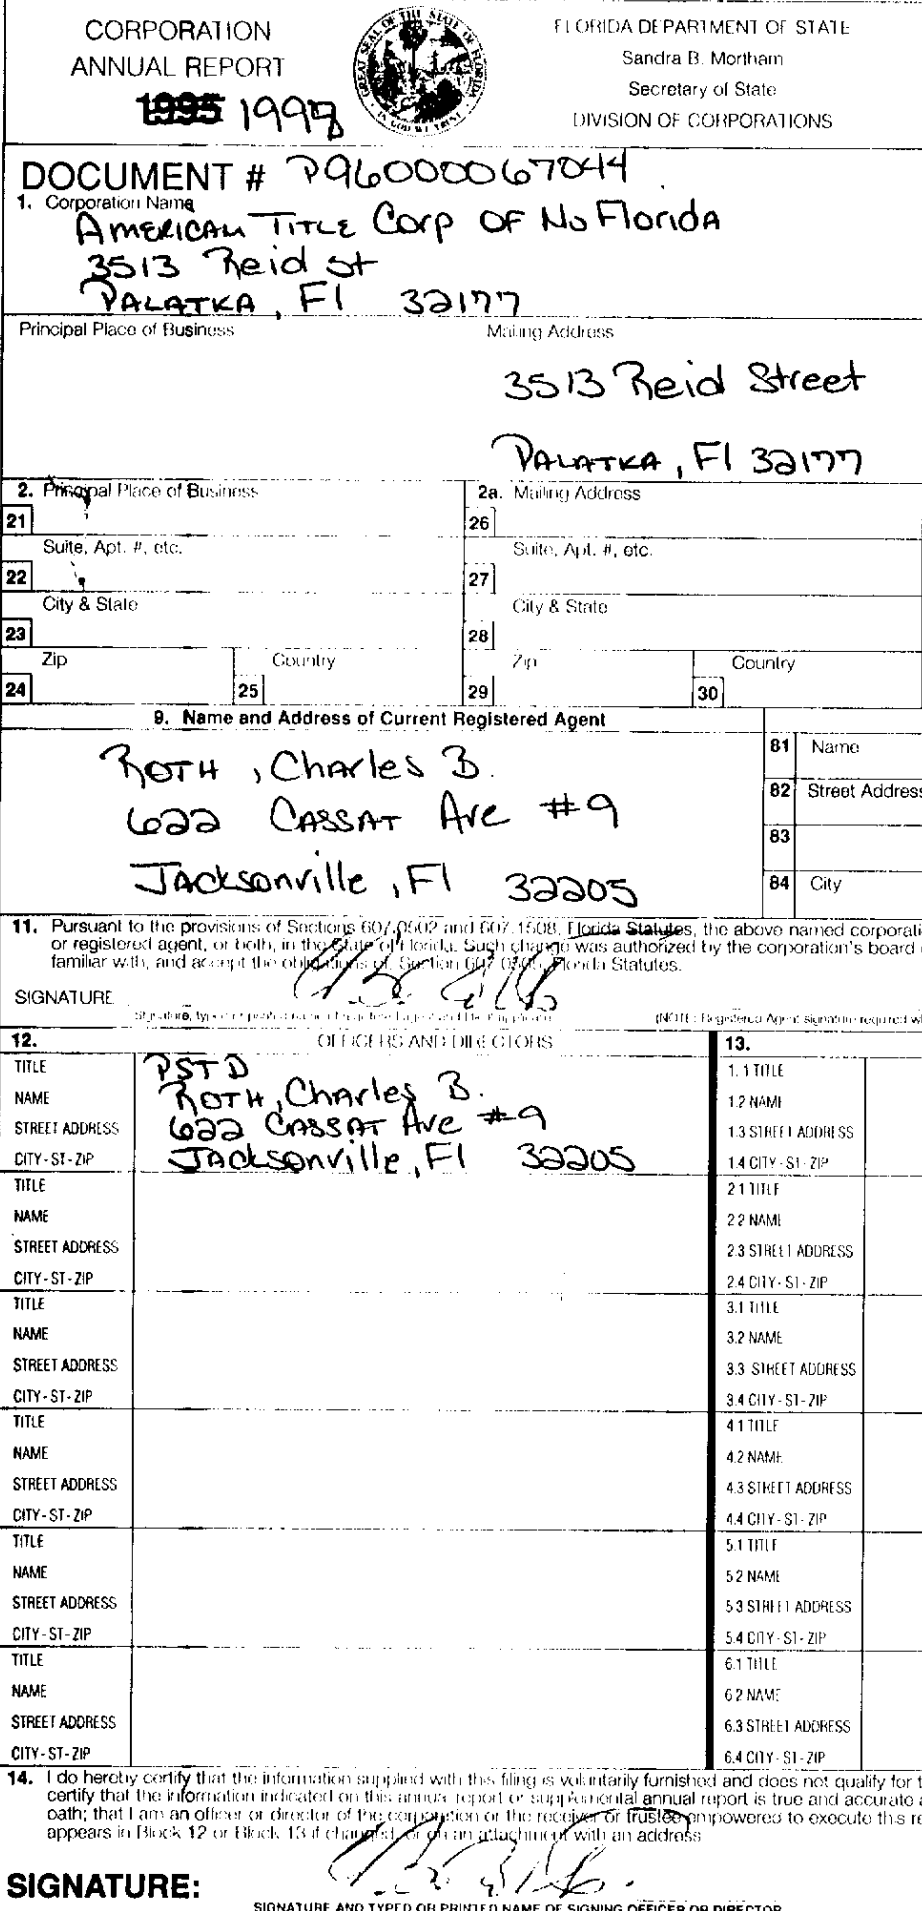 CORPORATION
ANNUAL REPORT
1995 1998
GREAT SEAL OF THE STATE OF FLORIDA
IN GOD WE TRUST
FLORIDA DEPARTMENT OF STATE
Sandra B. Mortham
Secretary of State
DIVISION OF CORPORATIONS
DOCUMENT # P96000067044
1. Corporation Name
AMERICAN TITLE Corp OF No Florida
3513 Reid St
PALATKA, Fl 32177
Principal Place of Business
Mailing Address
3513 Reid Street
PALATKA, Fl 32177
2. Principal Place of Business
2a. Mailing Address
21
26
Suite, Apt. #, etc.
Suite, Apt. #, etc.
22
27
City & State
City & State
23
28
Zip
Country
Zip
Country
24
25
29
30
9. Name and Address of Current Registered Agent
ROTH, Charles B.
622 CASSAT Ave #9
JAcksonville, Fl 32205
81 Name
82 Street Address
83
84 City
11. Pursuant to the provisions of Sections 607.0502 and 607.1508, Florida Statutes, the above named corporati
or registered agent, or both, in the State of Florida. Such change was authorized by the corporation's board
familiar with, and accept the obligations of, Section 607.0505, Florida Statutes.
SIGNATURE
(NOTE: Registered Agent signature required w
12. OFFICERS AND DIRECTORS
13.
TITLE PSTD
NAME ROTH, Charles B.
STREET ADDRESS 622 CASSAT Ave #9
CITY-ST-ZIP JAcksonville, Fl 32205
1.1 TITLE
1.2 NAME
1.3 STREET ADDRESS
1.4 CITY-ST-ZIP
TITLE
NAME
STREET ADDRESS
CITY-ST-ZIP
2.1 TITLE
2.2 NAME
2.3 STREET ADDRESS
2.4 CITY-ST-ZIP
TITLE
NAME
STREET ADDRESS
CITY-ST-ZIP
3.1 TITLE
3.2 NAME
3.3 STREET ADDRESS
3.4 CITY-ST-ZIP
TITLE
NAME
STREET ADDRESS
CITY-ST-ZIP
4.1 TITLE
4.2 NAME
4.3 STREET ADDRESS
4.4 CITY-ST-ZIP
TITLE
NAME
STREET ADDRESS
CITY-ST-ZIP
5.1 TITLE
5.2 NAME
5.3 STREET ADDRESS
5.4 CITY-ST-ZIP
TITLE
NAME
STREET ADDRESS
CITY-ST-ZIP
6.1 TITLE
6.2 NAME
6.3 STREET ADDRESS
6.4 CITY-ST-ZIP
14. I do hereby certify that the information supplied with this filing is voluntarily furnished and does not qualify for t
certify that the information indicated on this annual report or supplemental annual report is true and accurate a
oath; that I am an officer or director of the corporation or the receiver or trustee empowered to execute this re
appears in Block 12 or Block 13 if changed, or on an attachment with an address
SIGNATURE:
SIGNATURE AND TYPED OR PRINTED NAME OF SIGNING OFFICER OR DIRECTOR